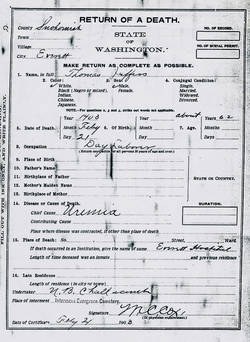 RETURN OF A DEATH.
County Snohomish
STATE OF WASHINGTON.
NO. OF RECORD.
NO. OF BURIAL PERMIT.
Village
City Everett
MAKE RETURN AS COMPLETE AS POSSIBLE.
1. Name, in full Thomas
2. Color White, Black (Negro or mixed), Indian, Chinese, Japanese.
3. Sex Male, Female.
4. Conjugal Condition: Single, Married, Widowed, Divorced.
5. Date of Death Year 1903 Month Feby Day 21
6. Date of Birth Year Month Day
7. Age about Years 62 Months Days
8. Occupation Day Labor
9. Place of Birth
10. Father's Name
11. Birthplace of Father
12. Mother's Maiden Name
13. Birthplace of Mother
STATE OR COUNTRY.
14. Disease or Cause of Death.
DURATION.
Chief Cause Uremia
Contributing Cause
Place where disease was contracted, if other than place of death
15. Place of Death: No. Street, Ward
If death occurred in an Institution, give the name of same Everett Hospital
Length of time deceased was an inmate and previous residence
16. Late Residence
Length of residence (in city or town)
Undertaker
Place of Interment Evergreen Cemetery
Signature
Date of Certificate Feby 21 1903